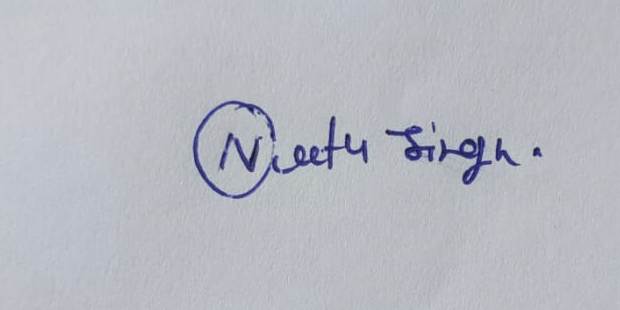 Neetu Singh.